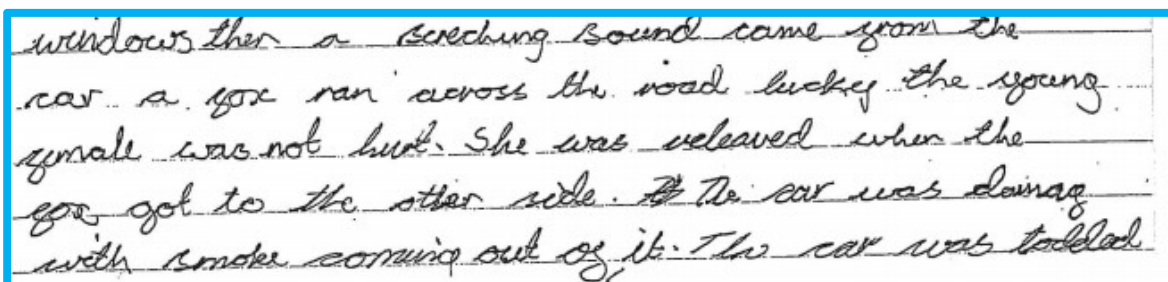 windows then a screching sound came from the
car a fox ran across the road luckey the young
female was not hurt. She was releaved when the
fox got to the other side. The car was damag
with smoke coming out of it. The car was toddled